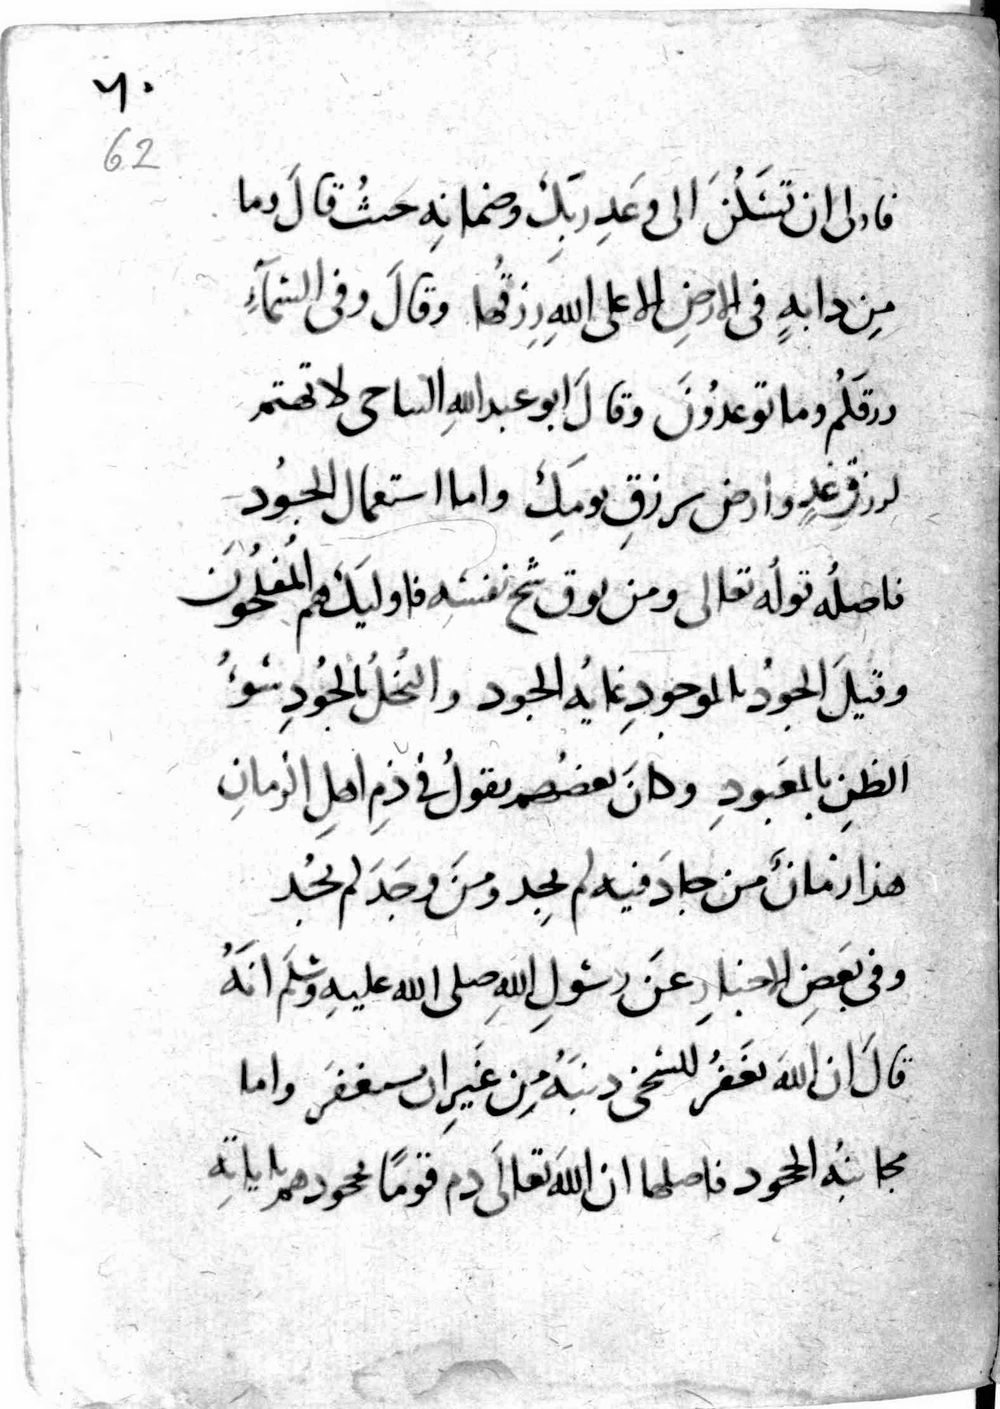 ٦٠
62
فاولى ان تَسْكُنَ الى وَعَدِ ربِّكَ وضمانِهِ حيثُ قالَ وما
مِن دابةٍ فى الارضِ الا على اللهِ رِزقُها وقالَ وفى السَّمآءِ
رزقكُم وما توعدُونَ وقالَ ابو عبد اللهِ الساحى لا تهتم
لرزقِ غدٍ وارض برزقِ يومِكَ واما استعمال الجُود
فاصلُه قولُه تعالى ومن يوق شح نفسِه فاوليَكَ هم المُفلحُونَ
وقيلَ الجودُ بالموجودِ غايةُ الجود والبُخلُ بالجُودِ سُوءُ
الظنِ بالمعبودِ وكانَ بعضُهم يقولُ فى ذمِ اهلِ الزمانِ
هذا زمانٌ من جادَ فيه لم يجِد ومنَ وجَدَ لم يجُد
وفى بعَضِ الاخبارِ عَن رسُولِ اللهِ صلى الله عليهِ وسلَم انهُ
قالَ ان اللهَ يَغفرُ للسخى ذنبَهُ مِن غَيرِ ان يستغفرَ واما
مجانبَةُ الجحود فاصلها ان اللهَ تعالَى ذم قومًا بجحودهم باياتِهِ